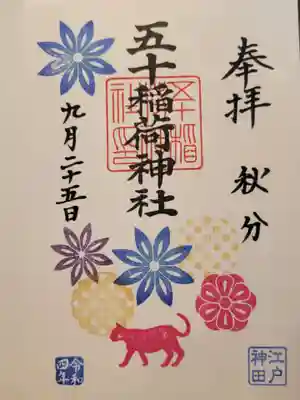 奉拝
秋分
五十稲荷神社
九月二十五日
令和
四年
江戸
神田